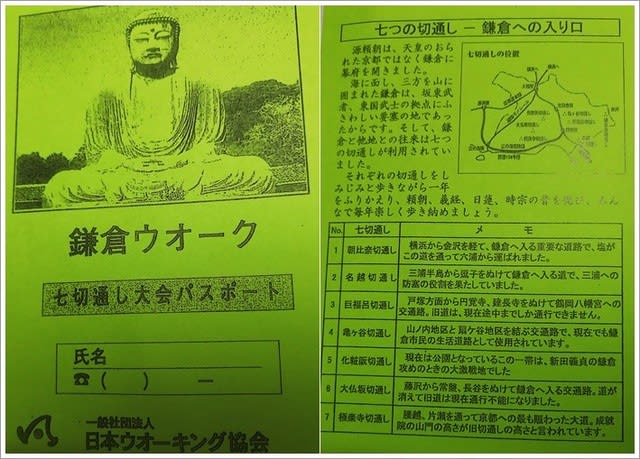 鎌倉ウオーク
七切通し大会パスポート
氏名
☎( ) ー
一般社団法人
日本ウオーキング協会
七つの切通し ー 鎌倉への入り口
源頼朝は、天皇のおら
れた京都ではなく鎌倉に
幕府を開きました。
海に面し、三方を山に
囲まれた鎌倉は、坂東武
者、東国武士の拠点にふ
さわしい要塞の地であっ
たからです。そして、鎌
倉と他地との往来は七つ
の切通しが利用されてい
ました。
それぞれの切通しをし
みじみと歩きながら一年
をふりかえり、頼朝、義経、日蓮、時宗の昔を偲び、みん
なで毎年楽しく歩き納めましょう。
七切通しの位置
No. 七切通し メモ
1 朝比奈切通し 横浜から金沢を経て、鎌倉へ入る重要な道路で、塩が
この道を通って六浦から運ばれました。
2 名越切通し 三浦半島から逗子をぬけて鎌倉へ入る道で、三浦への
防塞の役割を果たしていました。
3 巨福呂切通し 戸塚方面から円覚寺、建長寺をぬけて鶴岡八幡宮への
交通路。旧道は、現在途中までしか通行できません。
4 亀ヶ谷切通し 山ノ内地区と扇ケ谷地区を結ぶ交通路で、現在でも鎌
倉市民の生活道路として使用されています。
5 化粧阪切通し 現在は公園となっているこの一帯は、新田義貞の鎌倉
攻めのときの大激戦地でした
6 大仏坂切通し 藤沢から常盤、長谷をぬけて鎌倉へ入る交通路。道が
消えて旧道は現在通行不能になりました。
7 極楽寺切通し 腰越、片瀬を通って京都への最も賑わった大道。成就
院の山門の高さが旧切通しの高さと言われています。